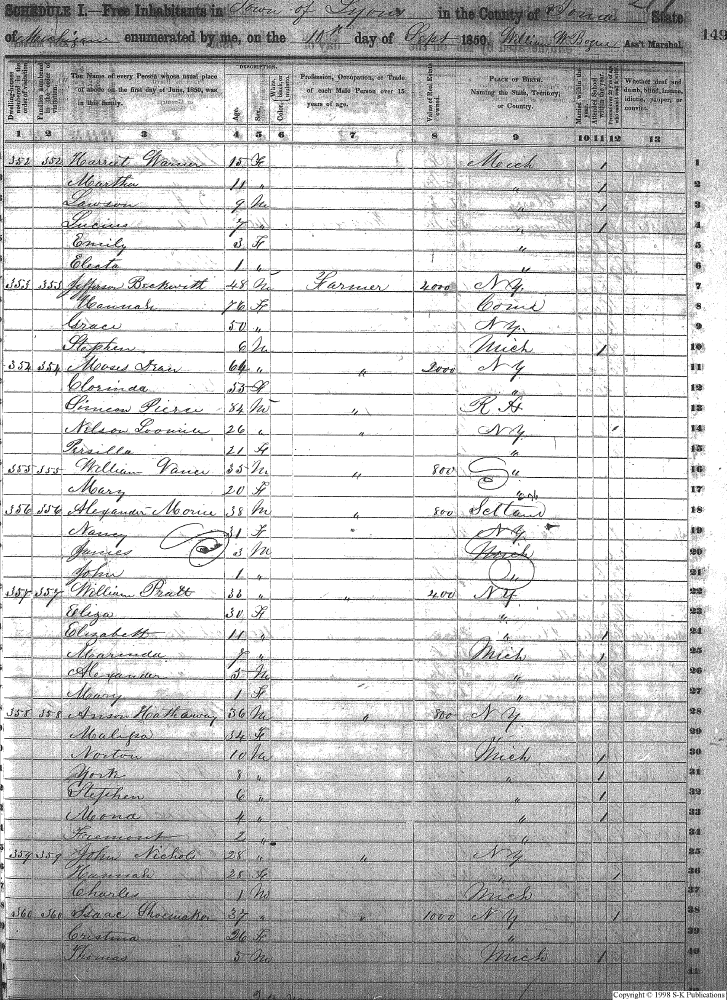 SCHEDULE I.—Free Inhabitants in Town of Lyons in the County of Ionia State
of Michigan enumerated by me, on the 10th day of Sept 1850. William W. Bogue Ass't Marshal.
149
DESCRIPTION.
Dwelling-houses numbered in the order of visitation.
Families numbered in the order of visitation.
The Name of every Person whose usual place of abode on the first day of June, 1850, was in this family.
Age.
Sex.
Color
Profession, Occupation, or Trade of each Male Person over 15 years of age.
Value of Real Estate owned.
PLACE OF BIRTH. Naming the State, Territory, or Country.
Married within the year.
Whether deaf and dumb, blind, insane, idiotic, pauper, or convict.
1 2 3 4 5 6 7 8 9 10 11 12 13
352 352 Harriet Warner 15 F Mich 1 1
Martha 11 " " 1 2
Lawson 9 M " 1 3
Lucius 7 " " 1 4
Emily 3 F " 5
Electa 1 " " 6
353 353 Jefferson Beckwith 48 M Farmer 4000 N.Y. 7
Hannah 76 F Conn 8
Grace 50 " N.Y. 9
Stephen 6 M Mich 1 10
354 354 Moses Dean 64 " " 2000 N Y 11
Clorinda 53 F " 12
Simeon Pierce 84 M " R I 13
Nelson Loomis 26 " " N.Y. 14
Persilla 21 F " 15
355 355 William Vance 35 M " 800 " 16
Mary 20 F " 17
356 356 Alexander Morne 38 M " 800 Scotland 18
Nancy 31 F N.Y. 19
James 3 M Mich 20
John 1 " " 21
357 357 William Pratt 33 " " 400 N Y 22
Eliza 30 F " 23
Elizabeth 11 " " 1 24
Marinda 7 " Mich 1 25
Alexander 5 M " 26
Mary 1 F " 27
358 358 Anson Hathaway 36 M " 800 N Y 28
Malissa 34 F " 29
Norton 10 M Mich 1 30
York 8 " " 1 31
Stephen 6 " " 1 32
Mond 4 " " 1 33
Fremont 2 " " 34
359 359 John Nichols 28 " " N.Y. 35
Hannah 28 F " 1 36
Charles 1 M Mich 37
360 360 Isaac Shoemaker 37 " " 1000 N Y 1 38
Cristina 26 F " 39
Thomas 5 M Mich 1 40
Copyright © 1998 S-K Publications